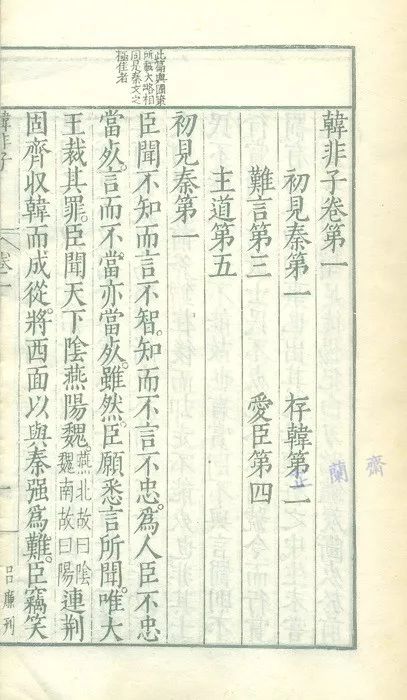 此篇與國策
所載大略相
同是秦文之
極佳者
韓非子卷第一
初見秦第一　存韓第二
難言第三　愛臣第四
主道第五
初見秦第一
臣聞不知而言不智。知而不言不忠。為人臣不忠
當死。言而不當。亦當死。雖然。臣願悉言所聞。唯大
王裁其罪。臣聞天下陰燕陽魏燕北故曰陰魏南故曰陽連荆
固齊収韓而成從。將西面以與秦强為難。臣竊笑
韓非子　卷一　一　呂廉刋
蘭齋